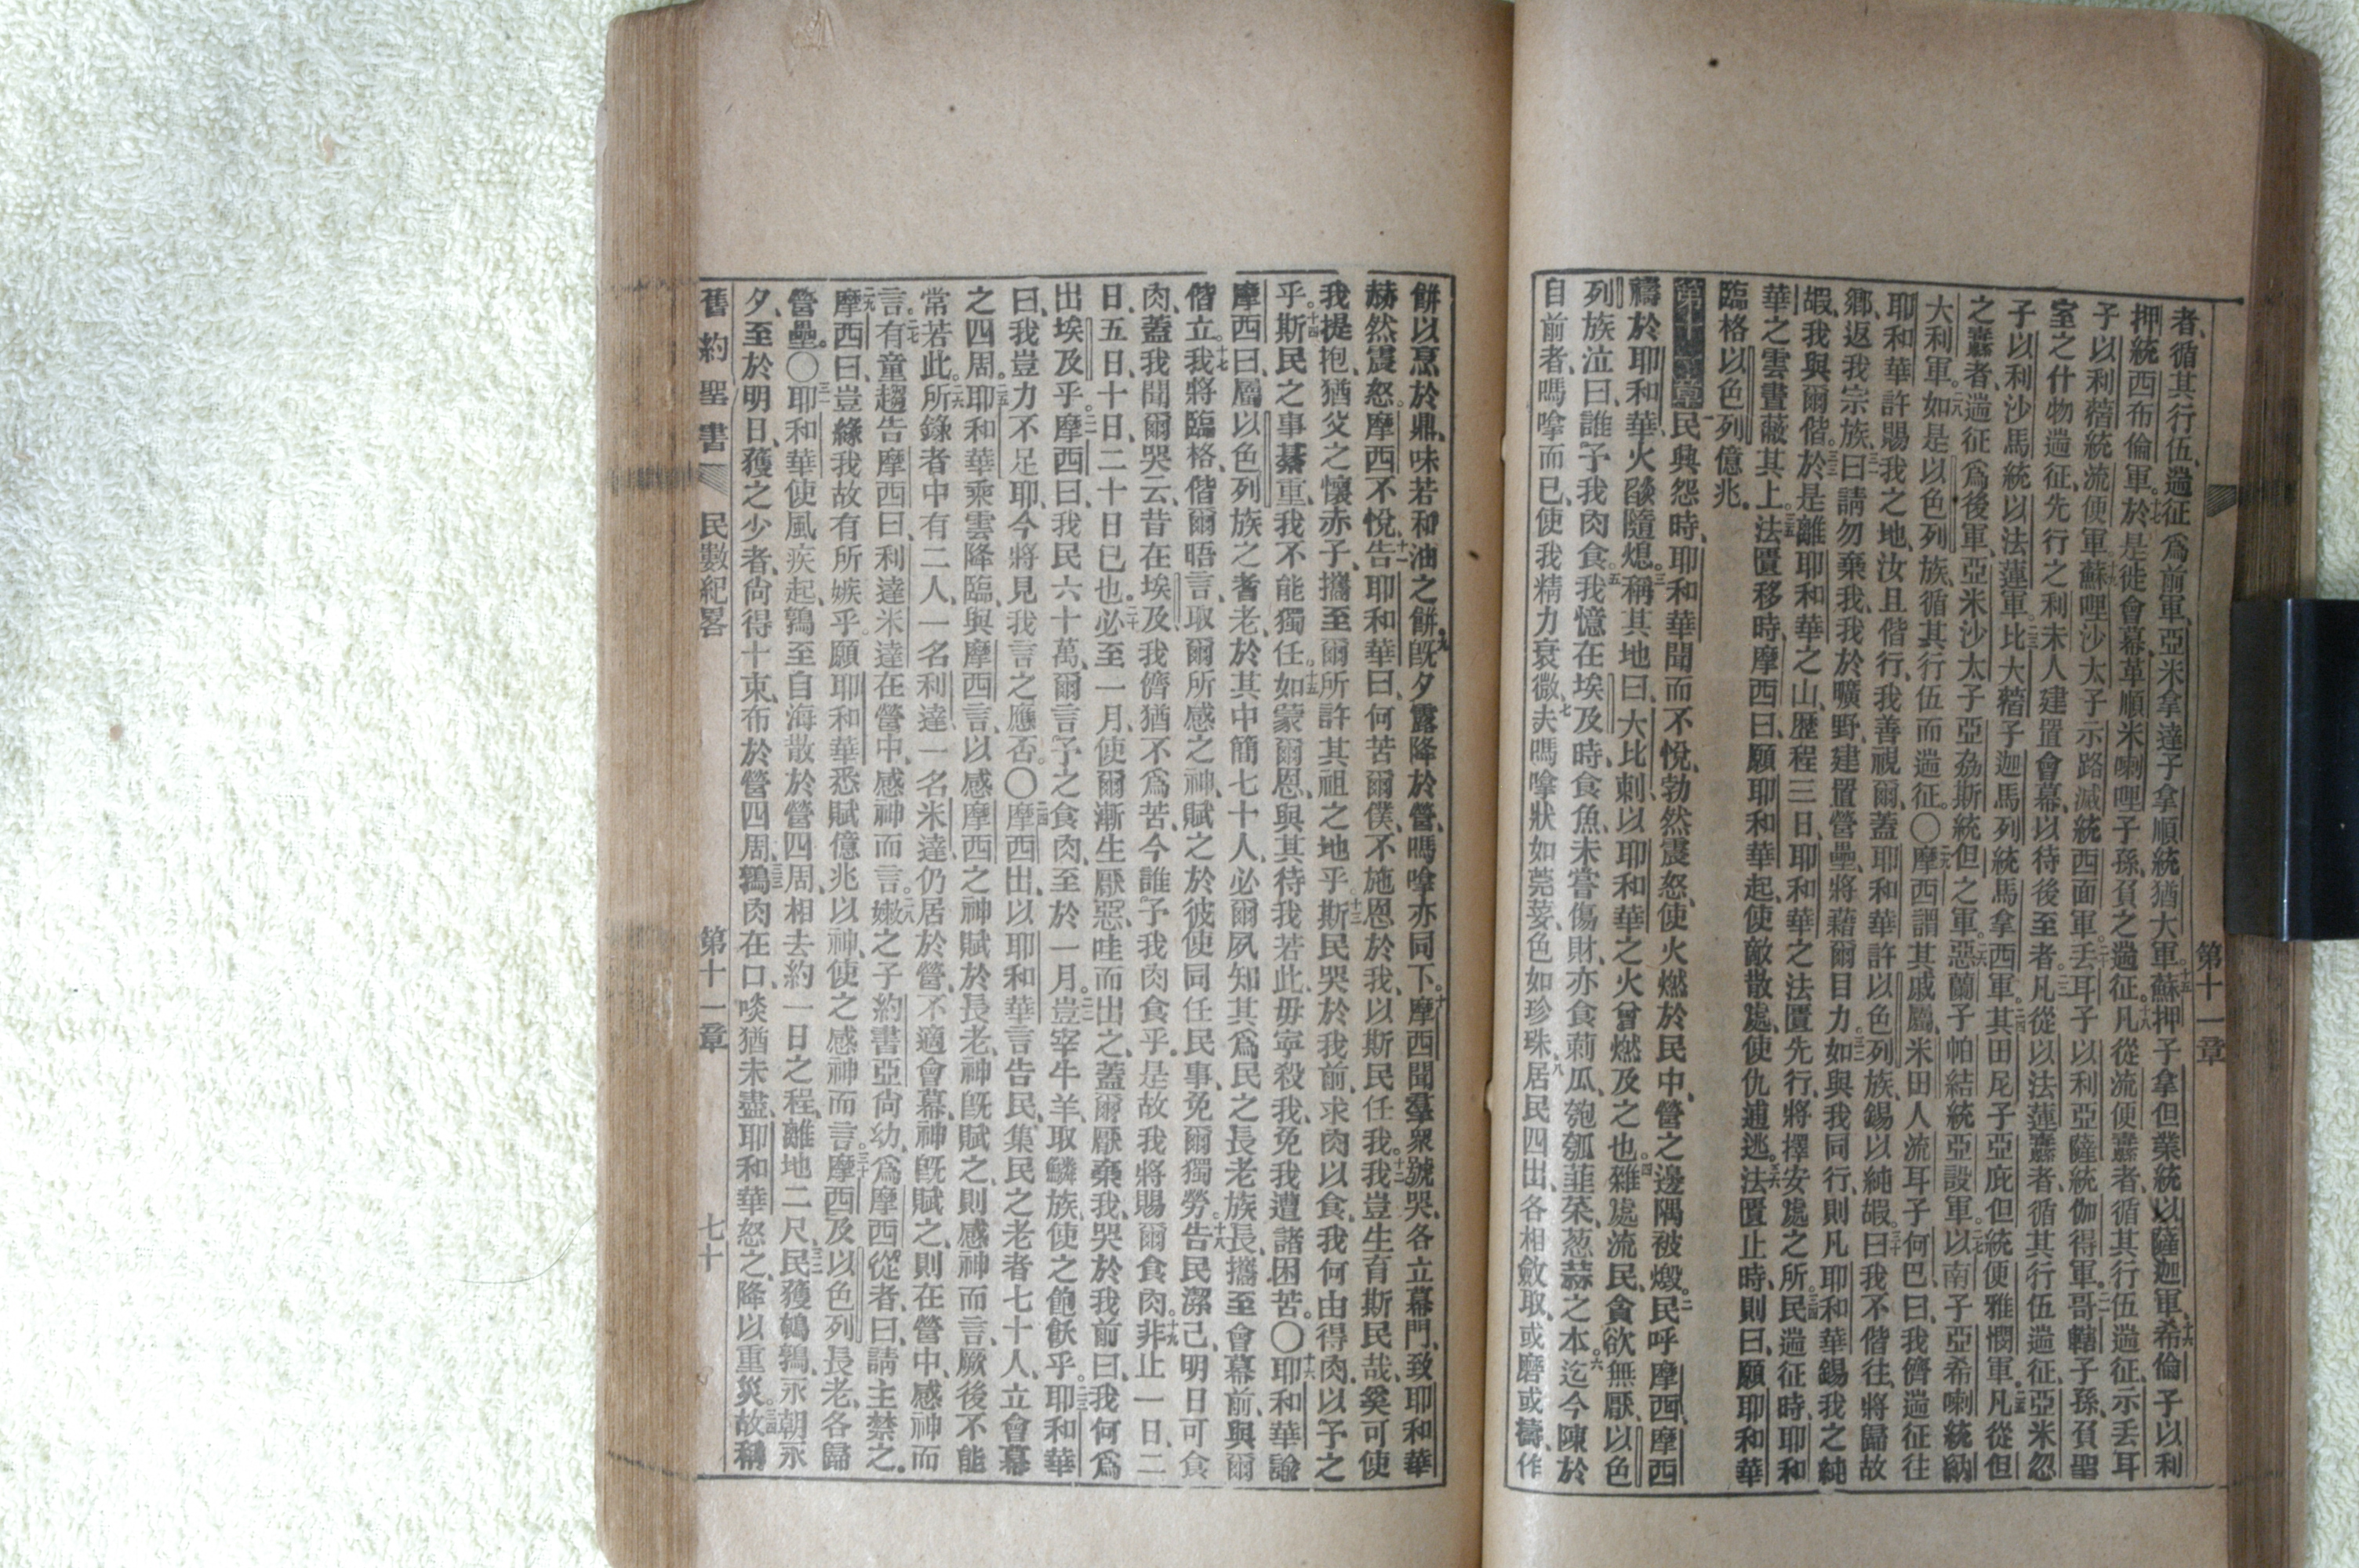 第十一章
者、循其行伍、遄征爲前軍、亞米拿達子拿順統猶大軍。十五蘇押子拿但業統以薩迦軍。十六希倫子以利
押統西布倫軍。十七於是徙會幕、革順米喇哩子孫負之遄征。十八凡從流便纛者、循其行伍遄征、示丟耳
子以利蓿統流便軍。十九蘇哩沙太子示路滅統西面軍。二十丟耳子以利亞薩統伽得軍。二一哥轄子孫、負聖
室之什物遄征、先行之利未人建置會幕、以待後至者。二二凡從以法蓮纛者、循其行伍遄征、亞米忽
子以利沙馬統以法蓮軍。二三比大蓿子迦馬列統馬拿西軍。二四其田尾子亞庇但統便雅憫軍。二五凡從但
之纛者、遄征爲後軍、亞米沙太子亞劦斯統但之軍。二六惡蘭子帕結統亞設軍。二七以南子亞希喇統納
大利軍。二八如是以色列族、循其行伍而遄征。〇二九摩西謂其戚屬、米田人流耳子何巴曰、我儕遄征往
耶和華許賜我之地、汝且偕行、我善視爾、蓋耶和華許以色列族、錫以純嘏。三十曰我不偕往、將歸故
鄉、返我宗族。三一曰請勿棄我、我於曠野、建置營壘、將藉爾目力。三二如與我同行、則凡耶和華錫我之純
嘏、我與爾偕。三三於是離耶和華之山、歷程三日、耶和華之法匱先行、將擇安處之所。三四民遄征時、耶和
華之雲晝蔽其上。三五法匱移時、摩西曰、願耶和華起、使敵散處、使仇逋逃。三六法匱止時、則曰、願耶和華
臨格以色列億兆。
第十一章 一民興怨時、耶和華聞而不悅、勃然震怒、使火燃於民中、營之邊隅被燬。二民呼摩西、摩西
禱於耶和華、火燄隨熄。三稱其地曰、大比剌、以耶和華之火曾燃及之也。四雜處流民、貪欲無厭、以色
列族泣曰、誰予我肉食。五我憶在埃及時、食魚、未嘗傷財、亦食荊瓜、匏瓠、韮菜、葱蒜之本。六迄今陳於
自前者、嗎嗱而已、使我精力衰微。七夫嗎嗱狀如莞荽、色如珍珠。八居民四出、各相斂取、或磨或擣、作
餠以烹於鼎、味若和油之餠。九旣夕、露降於營、嗎嗱亦同下。十摩西聞羣衆號哭、各立幕門、致耶和華
赫然震怒、摩西不悅。十一告耶和華曰、何苦爾僕、不施恩於我、以斯民任我。十二我豈生育斯民哉、奚可使
我提抱、猶父之懷赤子、攜至爾所許其祖之地乎。十三斯民哭於我前、求肉以食、我何由得肉、以予之
乎。十四斯民之事綦重、我不能獨任。十五如蒙爾恩、與其待我若此、毋寧殺我、免我遭諸困苦。〇十六耶和華諭
摩西曰、屬以色列族之耆老、於其中簡七十人、必爾夙知其爲民之長老族長、攜至會幕前、與爾
偕立。十七我將臨格、偕爾晤言、取爾所感之神、賦之於彼、使同任民事、免爾獨勞。十八告民潔己、明日可食
肉、蓋我聞爾哭云、昔在埃及、我儕猶不爲苦、今誰予我肉食乎。是故我將賜爾食肉。十九非止一日、二
日、五日、十日、二十日已也。二十必至一月、使爾漸生厭惡、哇而出之、蓋爾厭棄我、哭於我前曰、我何爲
出埃及乎。二一摩西曰、我民六十萬、爾言予之食肉、至於一月。二二豈宰牛羊、取鱗族、使之飽飫乎。二三耶和華
曰、我豈力不足耶、今將見我言之應否。〇二四摩西出、以耶和華言告民、集民之老者七十人、立會幕
之四周。二五耶和華乘雲降臨、與摩西言、以感摩西之神賦於長老、神旣賦之、則感神而言、厥後不能
常若此。二六所錄者中有二人、一名利達、一名米達、仍居於營、不適會幕、神旣賦之、則在營中、感神而
言。二七有童趨告摩西曰、利達米達在營中、感神而言。二八嫩之子約書亞尙幼、爲摩西從者、曰、請主禁之。
二九摩西曰、豈緣我故有所嫉乎。願耶和華悉賦億兆以神、使之感神而言。三十摩西及以色列長老、各歸
營壘。〇三一耶和華使風疾起、鶉至自海、散於營四周、相去約一日之程、離地二尺。三二民獲鵪鶉、永朝永
夕、至於明日、獲之少者、尙得十柬、布於營四周。三三鶉肉在口、啖猶未盡、耶和華怒之、降以重災。三四故稱
舊約聖書 民數紀畧 第十一章 七十